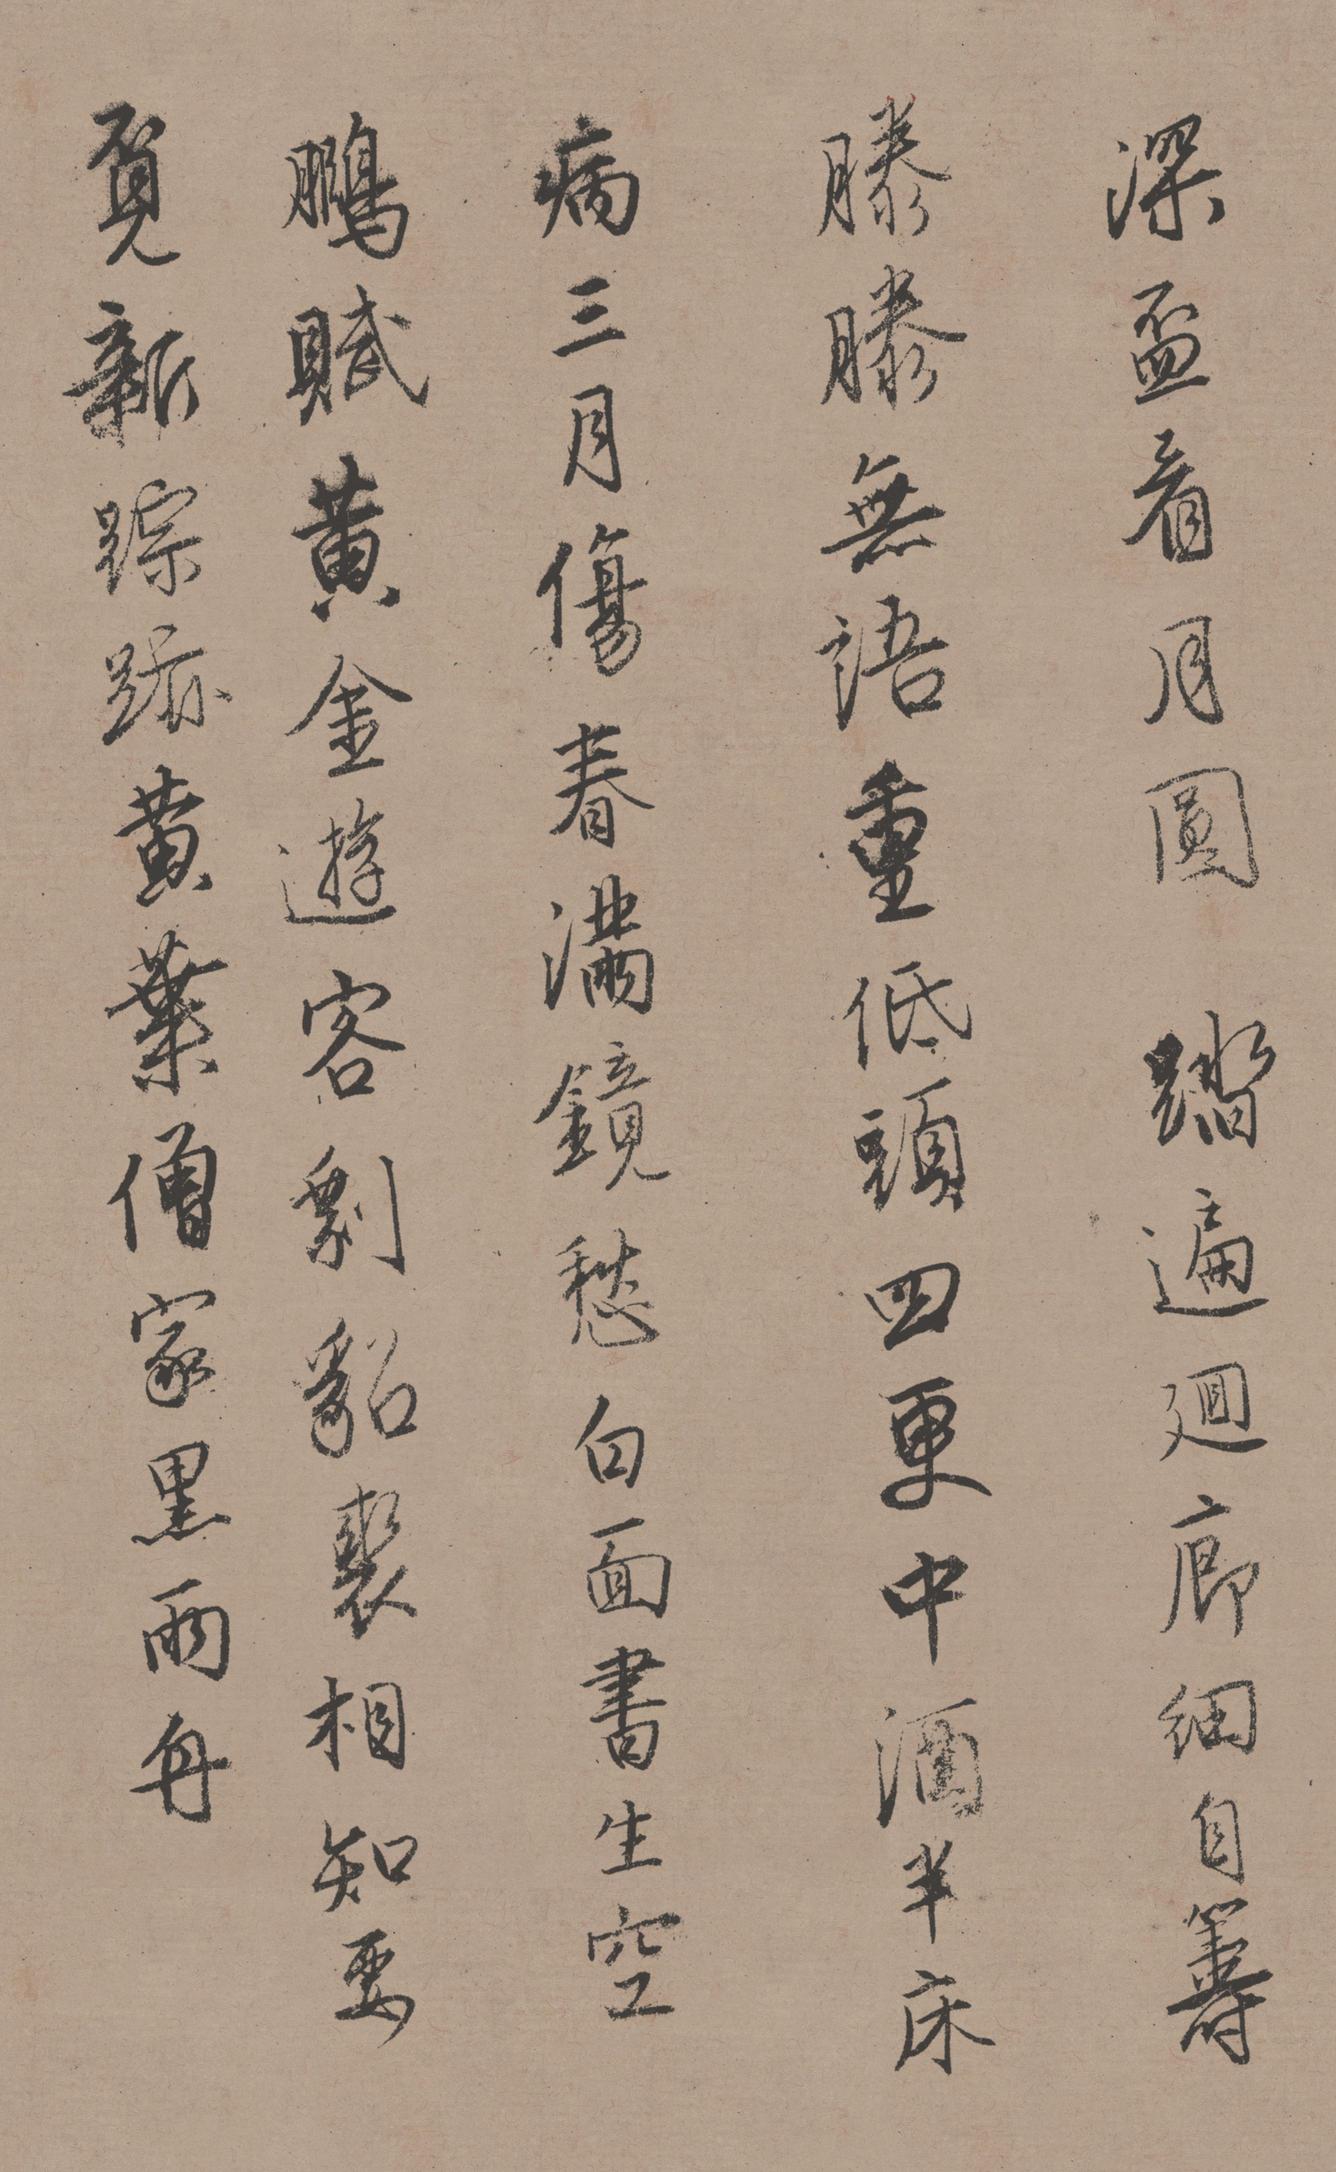 深盃看月圓 踏遍廻廊細自籌
滕滕無語重低頭四更中酒半床
病三月傷春滿鏡愁白面書生空
鵬賦黃金遊客剩貂裘相知要
覓新踪跡黃葉僧家黑雨舟